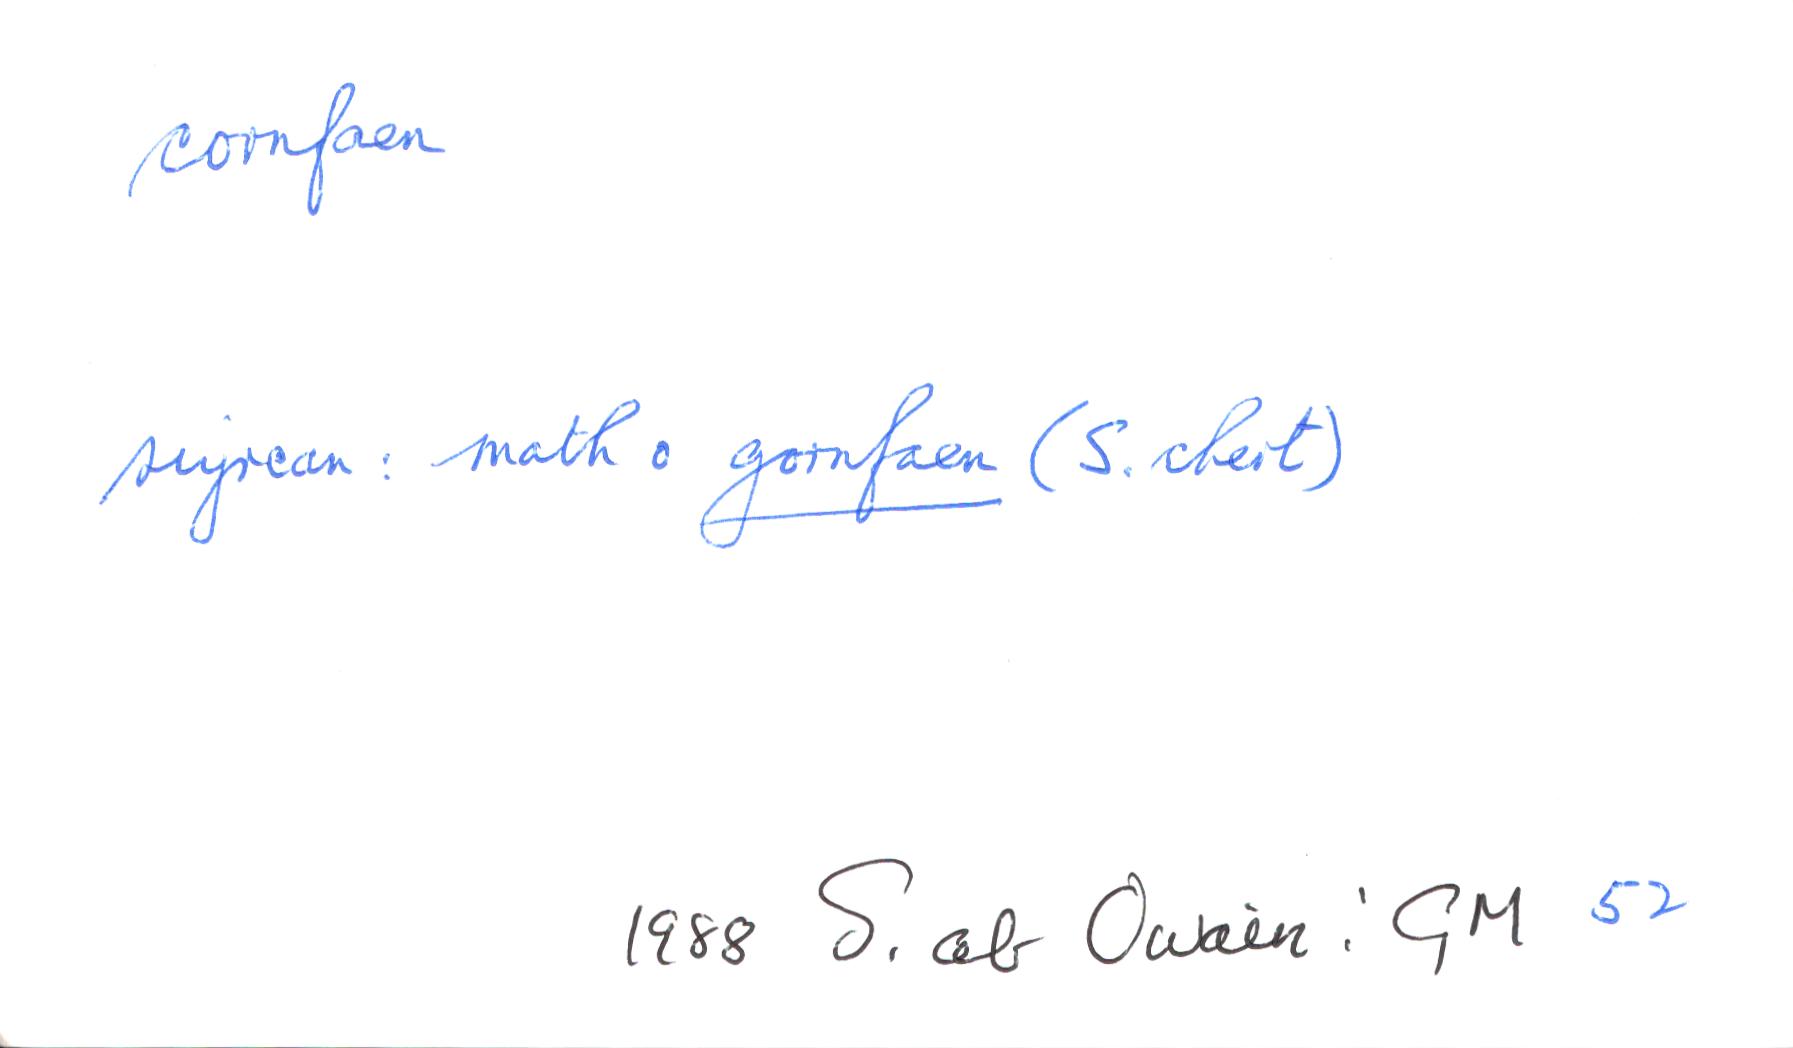 cornfaen
siyrean: math o gornfaen (S. chert)
1988 S. ab Owain: GM 52